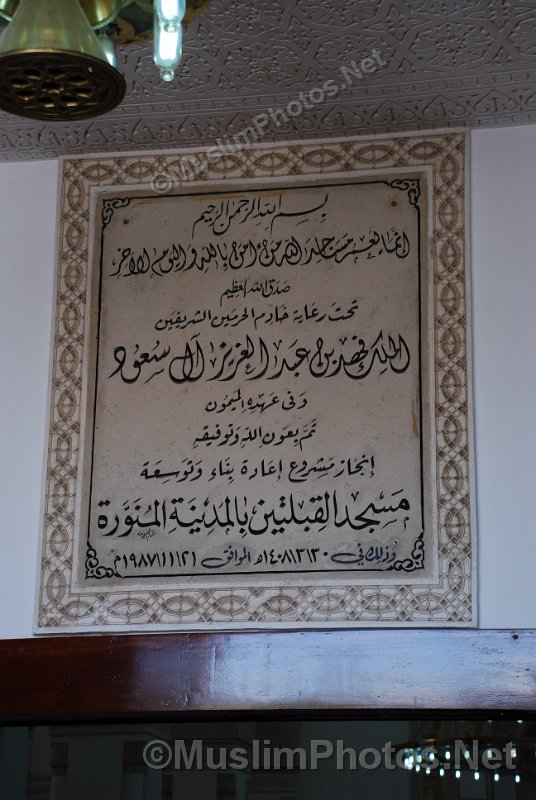 ©MuslimPhotos.Net
بسم الله الرحمن الرحيم
إنما يعمر مساجد الله من آمن بالله واليوم الآخر
صدق الله العظيم
تحت رعاية خادم الحرمين الشريفين
الملك فهد بن عبد العزيز آل سعود
وفى عهده الميمون
تم بعون الله وتوفيقه
إنجاز مشروع إعادة بناء وتوسعة
مسجد القبلتين بالمدينة المنورة
وذلك في ١٤٠٨/٣/٣٠هـ الموافق ١٩٨٧/١١/٢١م
©MuslimPhotos.Net